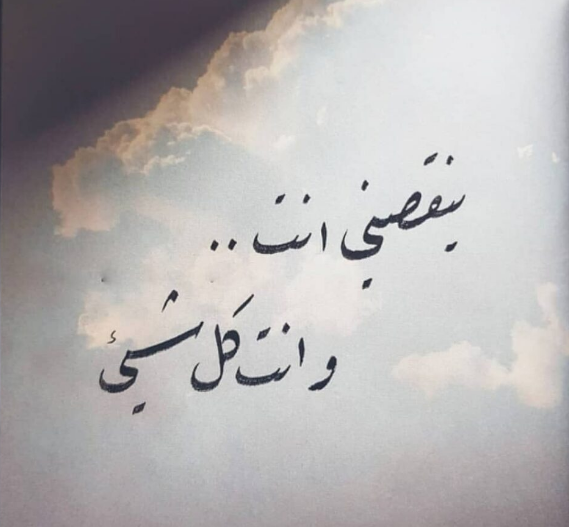 ينقصني انت..
وانت كل شيئ